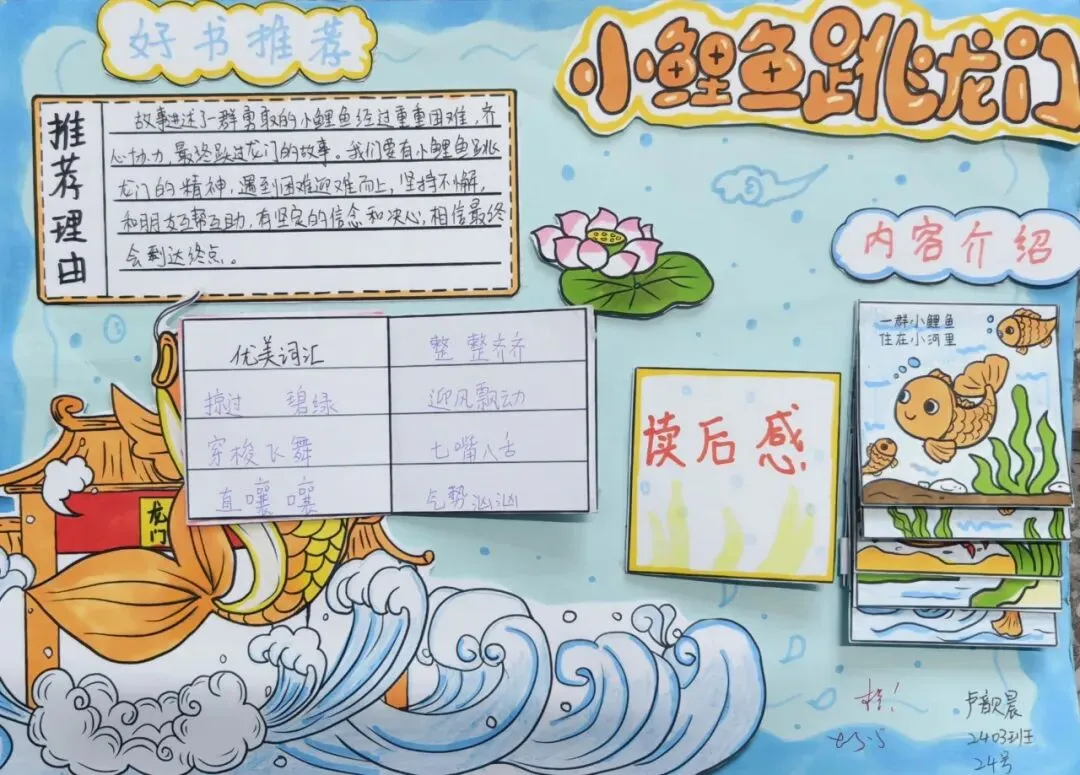 好书推荐
小鲤鱼跳龙门
推荐理由
故事讲述了一群勇敢的小鲤鱼经过重重困难,齐
心协力,最终跃过龙门的故事。我们要有小鲤鱼跳
龙门的精神,遇到困难迎难而上,坚持不懈,
和朋友互帮互助,有坚定的信念和决心,相信最终
会到达终点。
内容介绍
一群小鲤鱼
住在小河里
优美词汇
整整齐齐
掠过 碧绿
迎风飘动
穿梭飞舞
七嘴八舌
直嚷嚷
气势汹汹
读后感
龙门
2403班
24号